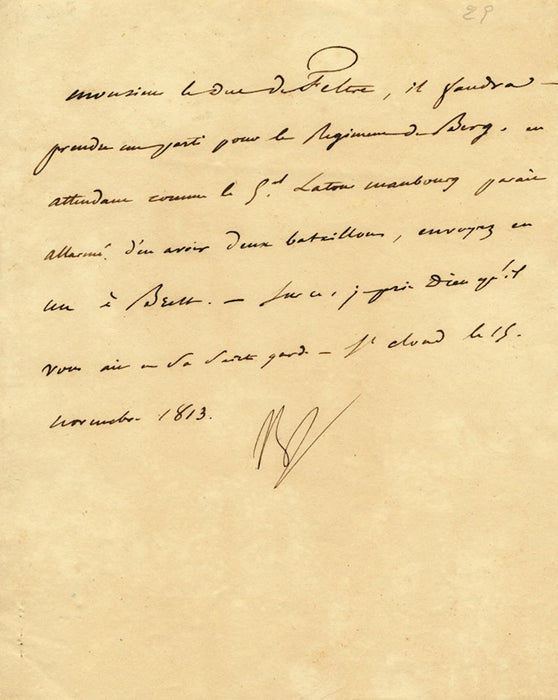 29
Monsieur le Duc de Feltre, il faudra
prendre un parti pour le Régiment de Berg. en
attendant comme le Gal. Latour maubourg parait
allarmé d'en avoir deux bataillons, envoyez en
un à Brest. — Sur ce, je prie Dieu qu'il
vous ait en Sa Sainte garde — St cloud le 15.
novembre 1813.